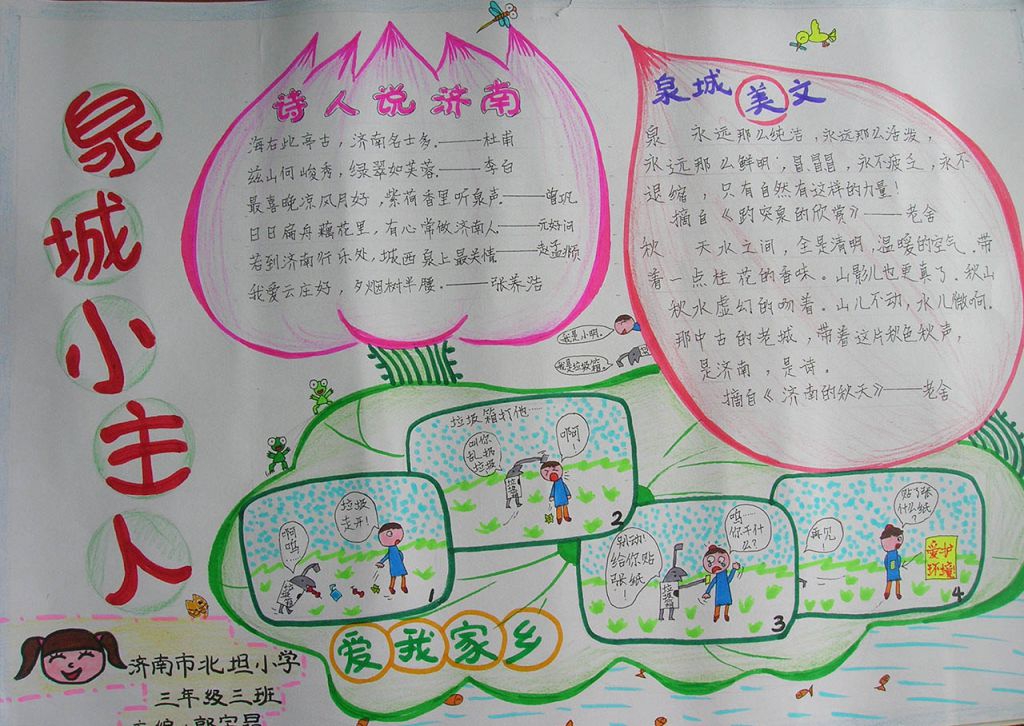 泉城小主人
诗人说济南
海右此亭古，济南名士多.——杜甫
兹山何峻秀，绿翠如芙蓉.——李白
最喜晚凉风月好，紫荷香里听泉声.——曾巩
日日扁舟藕花里，有心常做济南人.——元好问
若到济南行乐处，城西泉上最关情——赵孟頫
我爱云庄好，夕烟树半腰.——张养浩
泉城美文
泉 永远那么纯洁，永远那么活泼，
永远那么鲜明；冒冒冒，永不疲乏，永不
退缩，只有自然有这样的力量！
摘自《趵突泉的欣赏》——老舍
秋 天水之间，全是清明，温暖的空气，带
着一点桂花的香味。山影儿也更真了，秋山
秋水虚幻的吻着。山儿不动，水儿微响。
那中古的老城，带着这片秋色秋声，
是济南，是诗。
摘自《济南的秋天》——老舍
我是小明。
我是垃圾箱。
垃圾
走开！
啊
呜
垃圾箱
1
垃圾箱打他……
叫你
乱扔
垃圾
啊呵
！
垃圾箱
2
别动！
给你贴
张纸！
呜……
你干什
么？
垃圾箱
3
再见！
贴了张
什么纸
？
爱护
环境
4
爱我家乡
济南市北坦小学
三年级三班